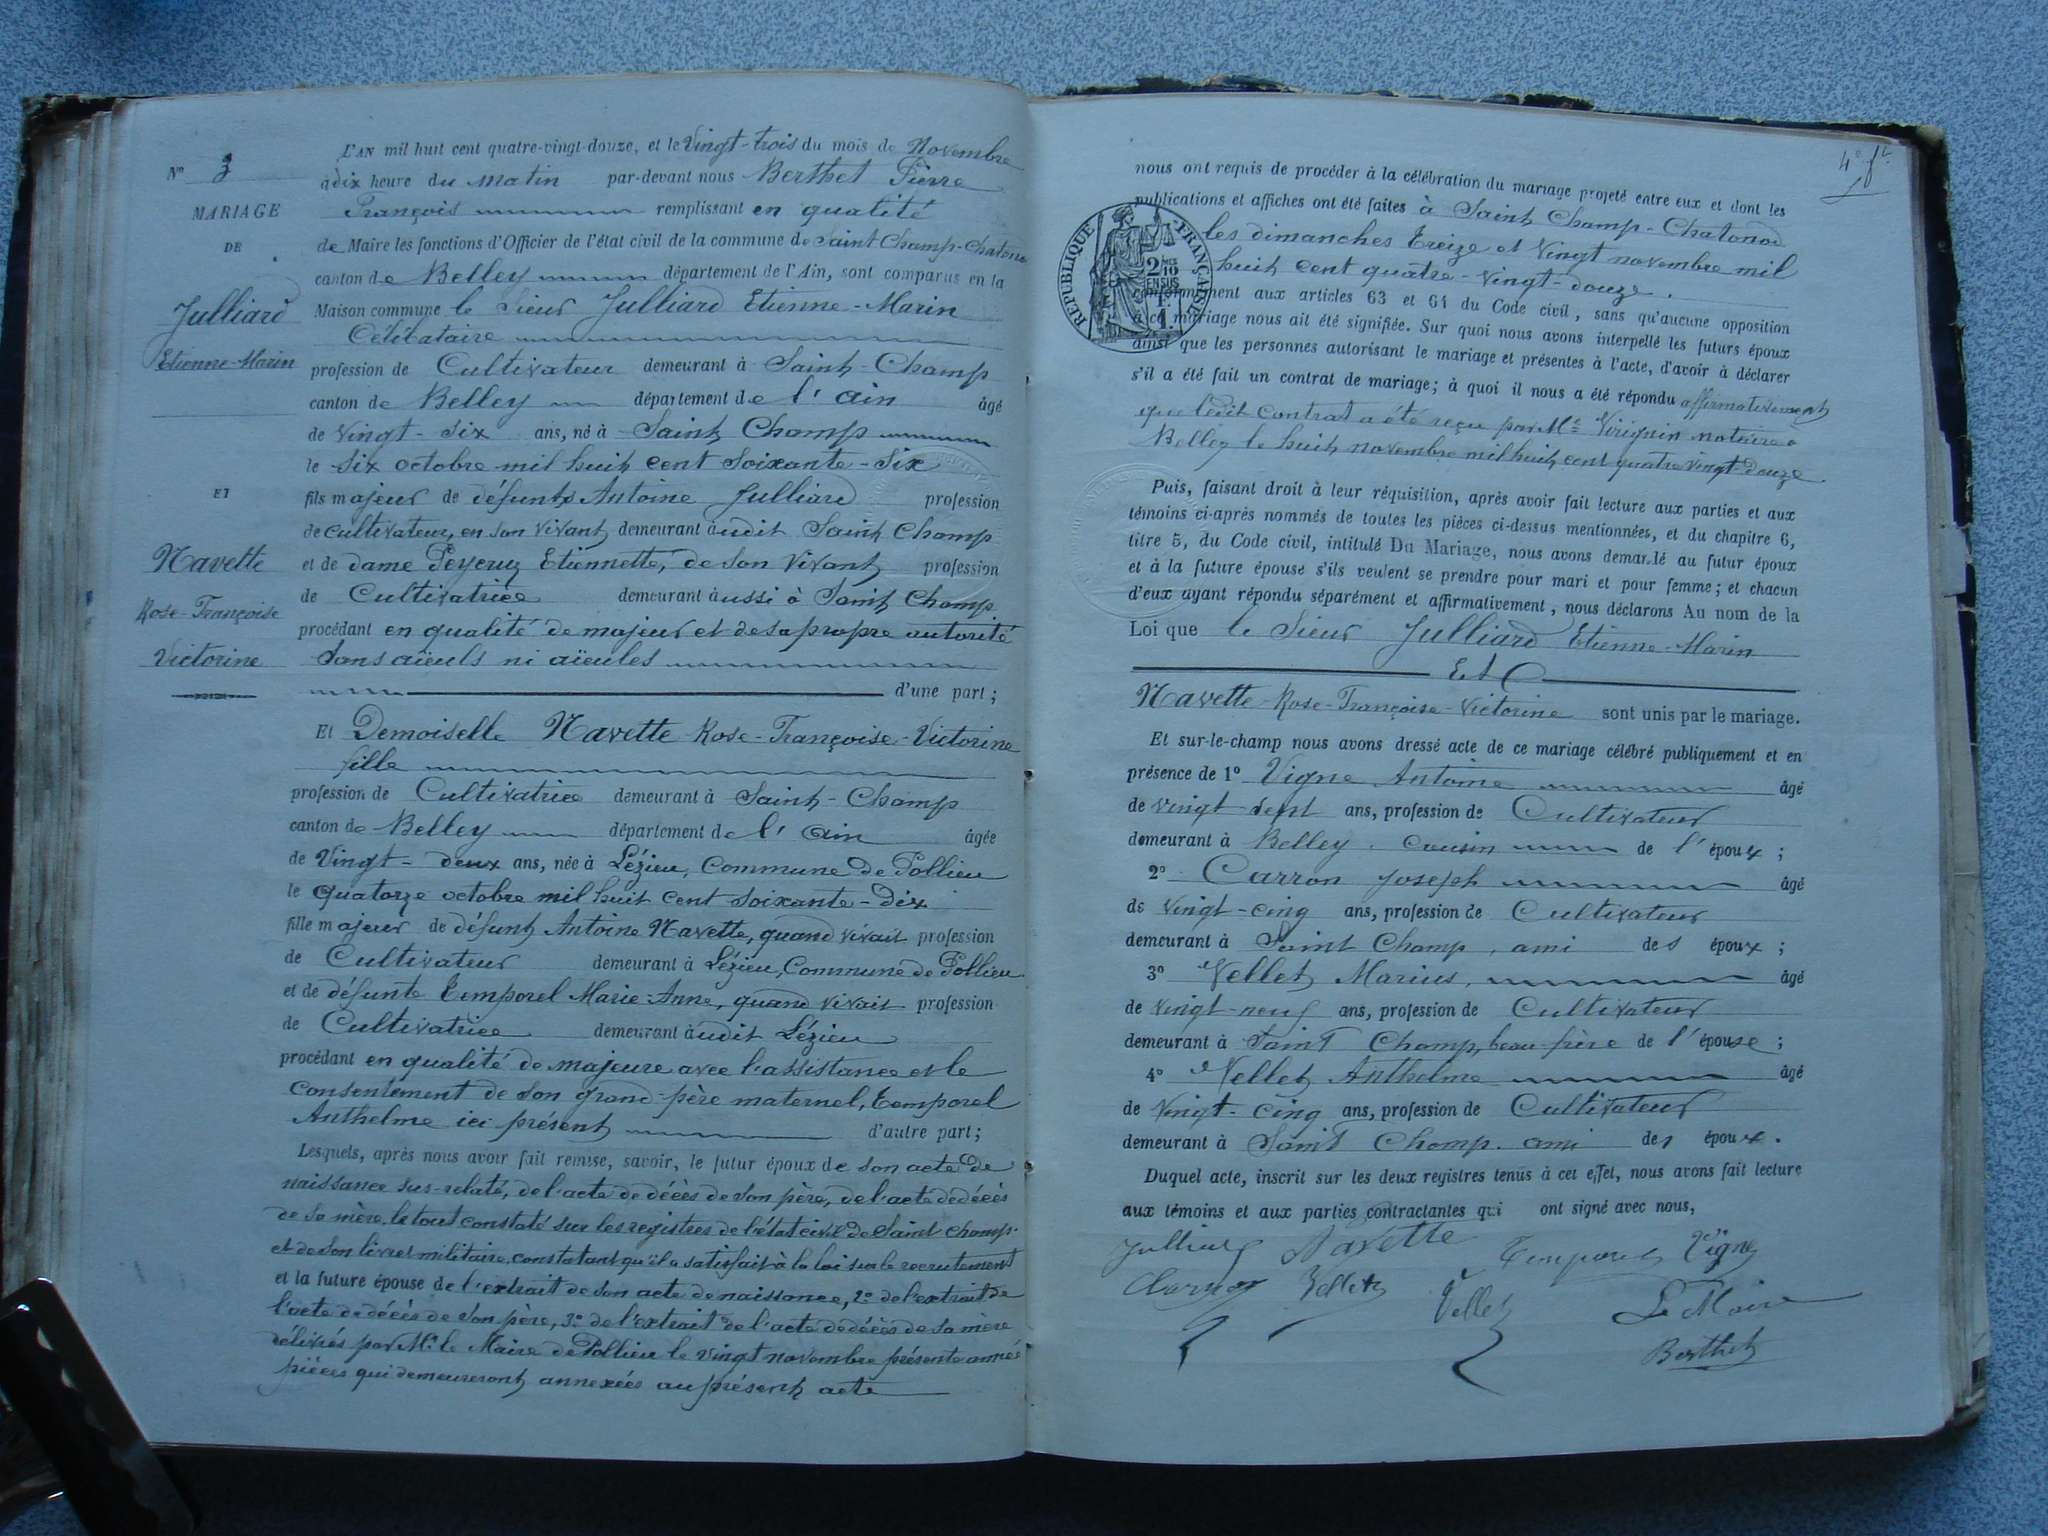 N° 3
MARIAGE
DE
Julliard
Etienne-Marin
ET
Navette
Rose-Françoise
Victorine
L'AN mil huit cent quatre-vingt-douze, et le Vingt-trois du mois de Novembre
à dix heure du matin par-devant nous Berthet Pierre
François remplissant en qualité
de Maire les fonctions d'Officier de l'état civil de la commune de Saint Champ-Chatonod
canton de Belley département de l'Ain, sont comparus en la
Maison commune le Sieur Julliard Etienne-Marin
Célibataire
profession de Cultivateur demeurant à Saint-Champ
canton de Belley département de l'ain âgé
de vingt-six ans, né à Saint Champ
le six octobre mil huit cent soixante-six
fils majeur de défunts Antoine Julliard profession
de cultivateur, en son vivant demeurant audit Saint Champ
et de dame Peyeruz Etiennette, de son vivant profession
de Cultivatrice demeurant aussi à Saint Champ
procédant en qualité de majeur et de sa propre autorité
Sans aïeuls ni aïeules
d'une part;
Et Demoiselle Navette Rose-Françoise-Victorine
fille
profession de Cultivatrice demeurant à Saint-Champ
canton de Belley département de l'ain âgée
de Vingt-deux ans, née à Lézieu, Commune de Pollieu
le quatorze octobre mil huit cent soixante-dix
fille majeur de défunt Antoine Navette, quand vivait profession
de Cultivateur demeurant à Lézieu, Commune de Pollieu
et de défunte Temporel Marie-Anne, quand vivait profession
de Cultivatrice demeurant audit Lézieu
procédant en qualité de majeure avec l'assistance et le
consentement de son grand-père maternel, Temporel
Anthelme ici présent d'autre part;
Lesquels, après nous avoir fait remise, savoir, le futur époux de son acte de
naissance sus-relaté, de l'acte de décès de son père, de l'acte de décès
de sa mère le tout constaté sur les registres de l'état civil de Saint Champ
et de son livret militaire, constatant qu'il a satisfait à la loi sur le recrutement
et la future épouse de l'extrait de son acte de naissance, 2° de l'extrait de
l'acte de décès de son père, 3° de l'extrait de l'acte de décès de sa mère
délivrés par Mr le Maire de Pollieu le vingt novembre présente année
pièces qui demeureront annexées au présent acte
4e ft
nous ont requis de procéder à la célébration du mariage projeté entre eux et dont les
publications et affiches ont été faites à Saint Champ-Chatonod
les dimanches treize et vingt novembre mil
huit cent quatre-vingt-douze.
RÉPUBLIQUE FRANÇAISE
2/10 EN SUS
1 F.
conformément aux articles 63 et 64 du Code civil, sans qu'aucune opposition
à ce mariage nous ait été signifiée. Sur quoi nous avons interpellé les futurs époux
ainsi que les personnes autorisant le mariage et présentes à l'acte, d'avoir à déclarer
s'il a été fait un contrat de mariage; à quoi il nous a été répondu affirmativement
que ledit contrat a été reçu par Me Virignin notaire à
Belley le huit novembre mil huit cent quatre vingt douze.
Puis, faisant droit à leur réquisition, après avoir fait lecture aux parties et aux
témoins ci-après nommés de toutes les pièces ci-dessus mentionnées, et du chapitre 6,
titre 5, du Code civil, intitulé Du Mariage, nous avons demandé au futur époux
et à la future épouse s'ils veulent se prendre pour mari et pour femme; et chacun
d'eux ayant répondu séparément et affirmativement, nous déclarons Au nom de la
Loi que le Sieur Julliard Etienne-Marin
Et
Navette Rose-Françoise-Victorine sont unis par le mariage.
Et sur-le-champ nous avons dressé acte de ce mariage célébré publiquement et en
présence de 1° Vigne Antoine âgé
de vingt sept ans, profession de Cultivateur
demeurant à Belley. cousin de l'époux;
2° Carron Joseph âgé
de vingt-cinq ans, profession de Cultivateur
demeurant à Saint Champ, ami des époux;
3° Vellet Marius, âgé
de vingt-neuf ans, profession de Cultivateur
demeurant à Saint Champ, beau-frère de l'épouse;
4° Vellet Anthelme âgé
de Vingt-cinq ans, profession de Cultivateur
demeurant à Saint Champ. ami des époux.
Duquel acte, inscrit sur les deux registres tenus à cet effet, nous avons fait lecture
aux témoins et aux parties contractantes qui ont signé avec nous,
Julliard Navette Temporel Vigne
Carron Vellet Vellet Le Maire
Berthet